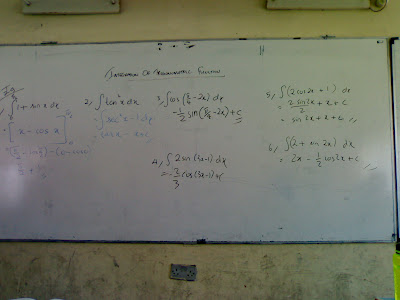 INTEGRATION OF TRIGONOMETRIC FUNCTION
1 + sin x dx
= [x - cos x]
2, ∫ tan²x dx
= ∫ sec²x - 1 dx
x - x + c
3, ∫ cos (π/4 - 2x) dx
- 1/2 sin (π/4 - 2x) + c
4, ∫ 2 sin (3x-1) dx
= - 2/3 cos (3x-1) + c
5, ∫ (2 cos 2x + 1) dx
= 2 sin 2x / 2 + x + c
= sin 2x + x + c
6, ∫ (2 + sin 2x) dx
= 2x - 1/2 cos 2x + c